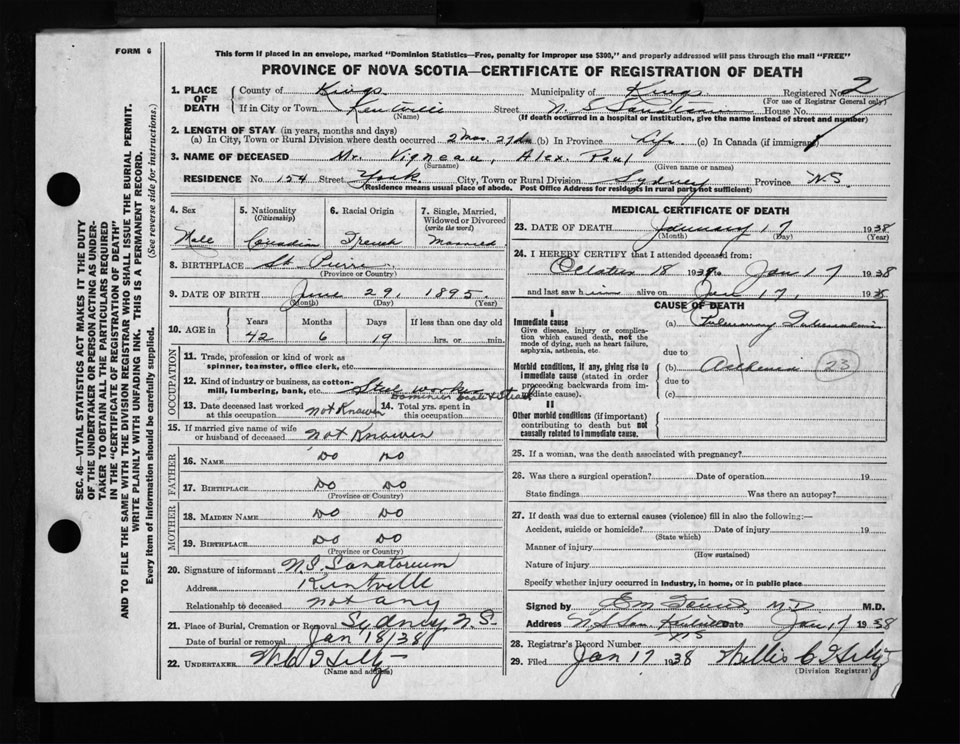 FORM 6
This form if placed in an envelope, marked "Dominion Statistics—Free, penalty for improper use $300," and properly addressed will pass through the mail "FREE"
PROVINCE OF NOVA SCOTIA—CERTIFICATE OF REGISTRATION OF DEATH
SEC. 46—VITAL STATISTICS ACT MAKES IT THE DUTY
OF THE UNDERTAKER OR PERSON ACTING AS UNDER-
TAKER TO OBTAIN ALL THE PARTICULARS REQUIRED
IN THE "CERTIFICATE OF REGISTRATION OF DEATH"
AND TO FILE THE SAME WITH THE DIVISION REGISTRAR WHO SHALL ISSUE THE BURIAL PERMIT.
WRITE PLAINLY WITH UNFADING INK. THIS IS A PERMANENT RECORD.
Every item of information should be carefully supplied. (See reverse side for instructions.)
1. PLACE OF DEATH County of Kings Municipality of Kings Registered No. 2
(For use of Registrar General only)
If in City or Town Kentville Street N. S. Sanatorium House No.
(Name) (If death occurred in a hospital or institution, give the name instead of street and number)
2. LENGTH OF STAY (in years, months and days)
(a) In City, Town or Rural Division where death occurred 2 Mos. 27 ds (b) In Province Life (c) In Canada (if immigrant)
3. NAME OF DECEASED Mr. Vigneau, Alex. Paul
(Surname) (Given name or names)
RESIDENCE No. 154 Street York City, Town or Rural Division Sydney Province N.S.
(Residence means usual place of abode. Post Office Address for residents in rural parts not sufficient)
4. Sex
Male
5. Nationality
(Citizenship)
Canadian
6. Racial Origin
French
7. Single, Married, Widowed or Divorced
(write the word)
Married
8. BIRTHPLACE St. Pierre
(Province or Country)
9. DATE OF BIRTH June 29, 1895
(Month) (Day) (Year)
10. AGE in Years Months Days If less than one day old
42 6 19 hrs. or min.
OCCUPATION
11. Trade, profession or kind of work as
spinner, teamster, office clerk, etc.
12. Kind of industry or business, as cotton-
mill, lumbering, bank, etc. Steel worker
Dominion Coal & Steel
13. Date deceased last worked at this occupation not Knowen 14. Total yrs. spent in this occupation
15. If married give name of wife
or husband of deceased not Knowen
FATHER
16. NAME Do Do
17. BIRTHPLACE Do Do
(Province or Country)
MOTHER
18. MAIDEN NAME Do Do
19. BIRTHPLACE Do Do
(Province or Country)
20. Signature of informant N.S. Sanatorium
Address Kentville
Relationship to deceased not any
21. Place of Burial, Cremation or Removal Sydney N.S.
Date of burial or removal Jan 18/38
22. UNDERTAKER
(Name and address)
MEDICAL CERTIFICATE OF DEATH
23. DATE OF DEATH January 17 1938
(Month) (Day) (Year)
24. I HEREBY CERTIFY that I attended deceased from:
October 18 1937 to Jan 17 1938
and last saw him alive on Jan 17, 1938
CAUSE OF DEATH
I
Immediate cause (a) Pulmonary Tuberculosis
Give disease, injury or complica-
tion which caused death, not the
mode of dying, such as heart failure,
asphyxia, asthenia, etc.
due to
Morbid conditions, if any, giving rise to
immediate cause (stated in order
proceeding backwards from im-
mediate cause).
(b) Asthenia 23
due to
(c)
II
Other morbid conditions (if important)
contributing to death but not
causally related to immediate cause.
25. If a woman, was the death associated with pregnancy?
26. Was there a surgical operation? Date of operation 19
State findings Was there an autopsy?
27. If death was due to external causes (violence) fill in also the following:—
Accident, suicide or homicide? Date of injury 19
(State which)
Manner of injury
(How sustained)
Nature of injury
Specify whether injury occurred in industry, in home, or in public place
Signed by M.D. M.D.
Address N.S. San Kentville NS Date Jan 17 1938
28. Registrar's Record Number
29. Filed Jan 17 1938 Willis C
(Division Registrar)